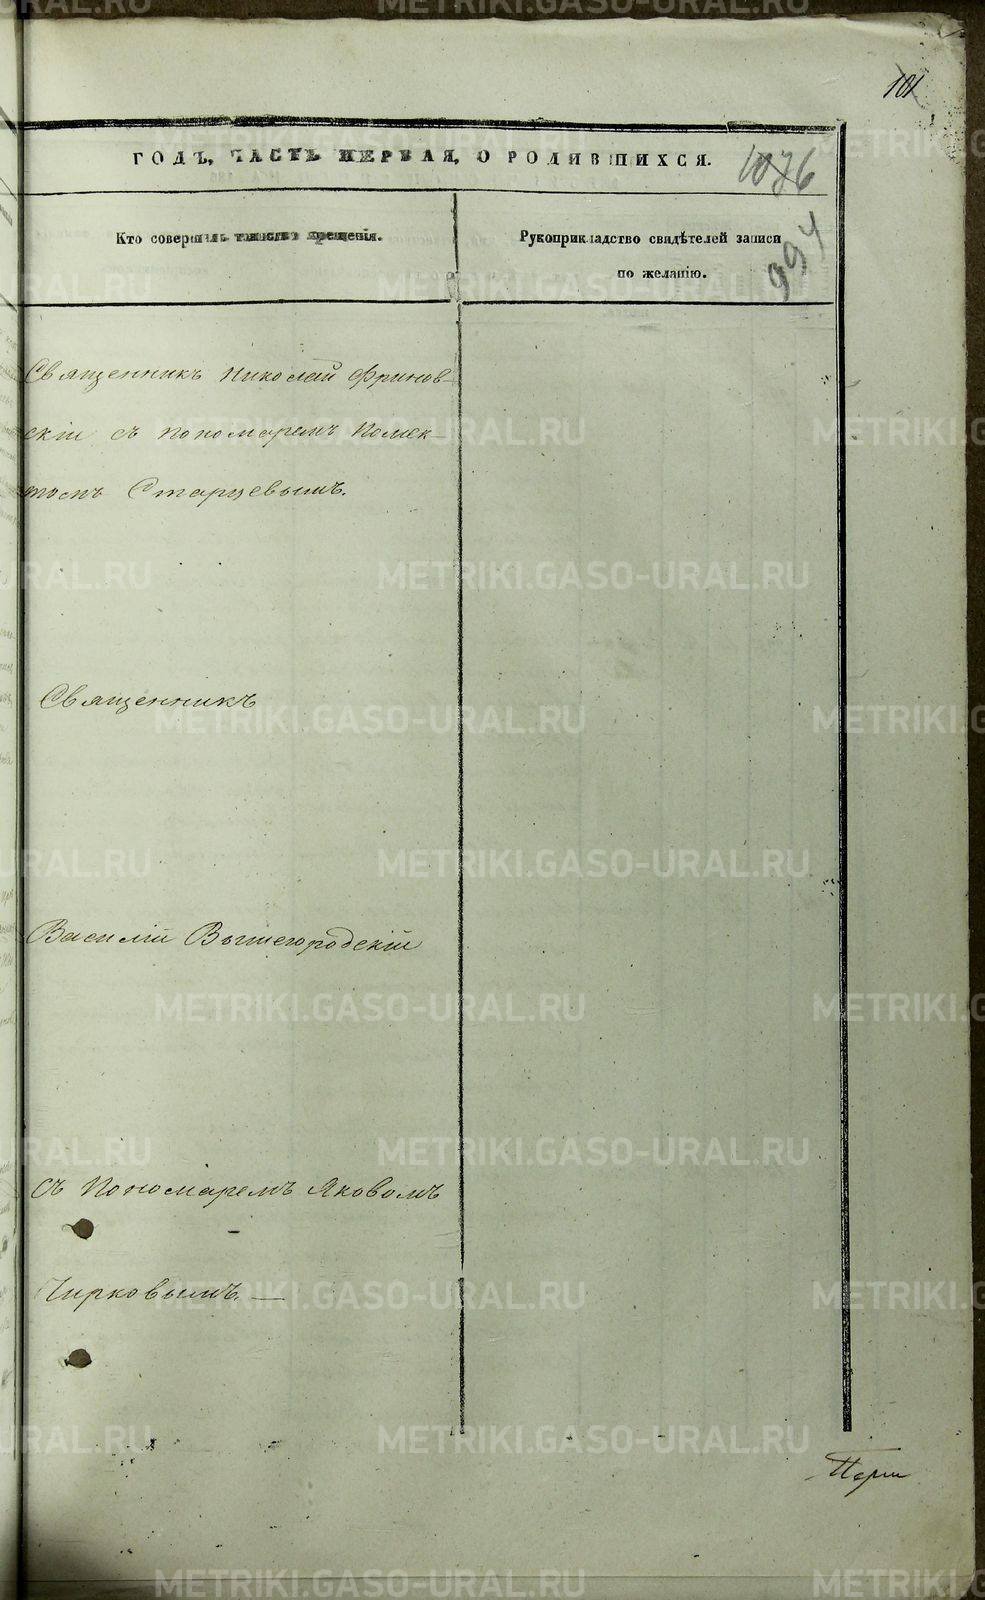 101
ГОДЪ, ЧАСТЬ ПЕРВАЯ, О РОДИВШИХСЯ.
1076
994
Кто совершалъ таинство крещенія.
Рукоприкладство свидѣтелей записи
по желанію.
Священникъ Николай Фринов-
скій съ пономаремъ Полієк-
томъ Старцевымъ.
Священникъ
Василій Вышегородскій
съ Пономаремъ Яковомъ
Чирковымъ. —
METRIKI.GASO-URAL.RU